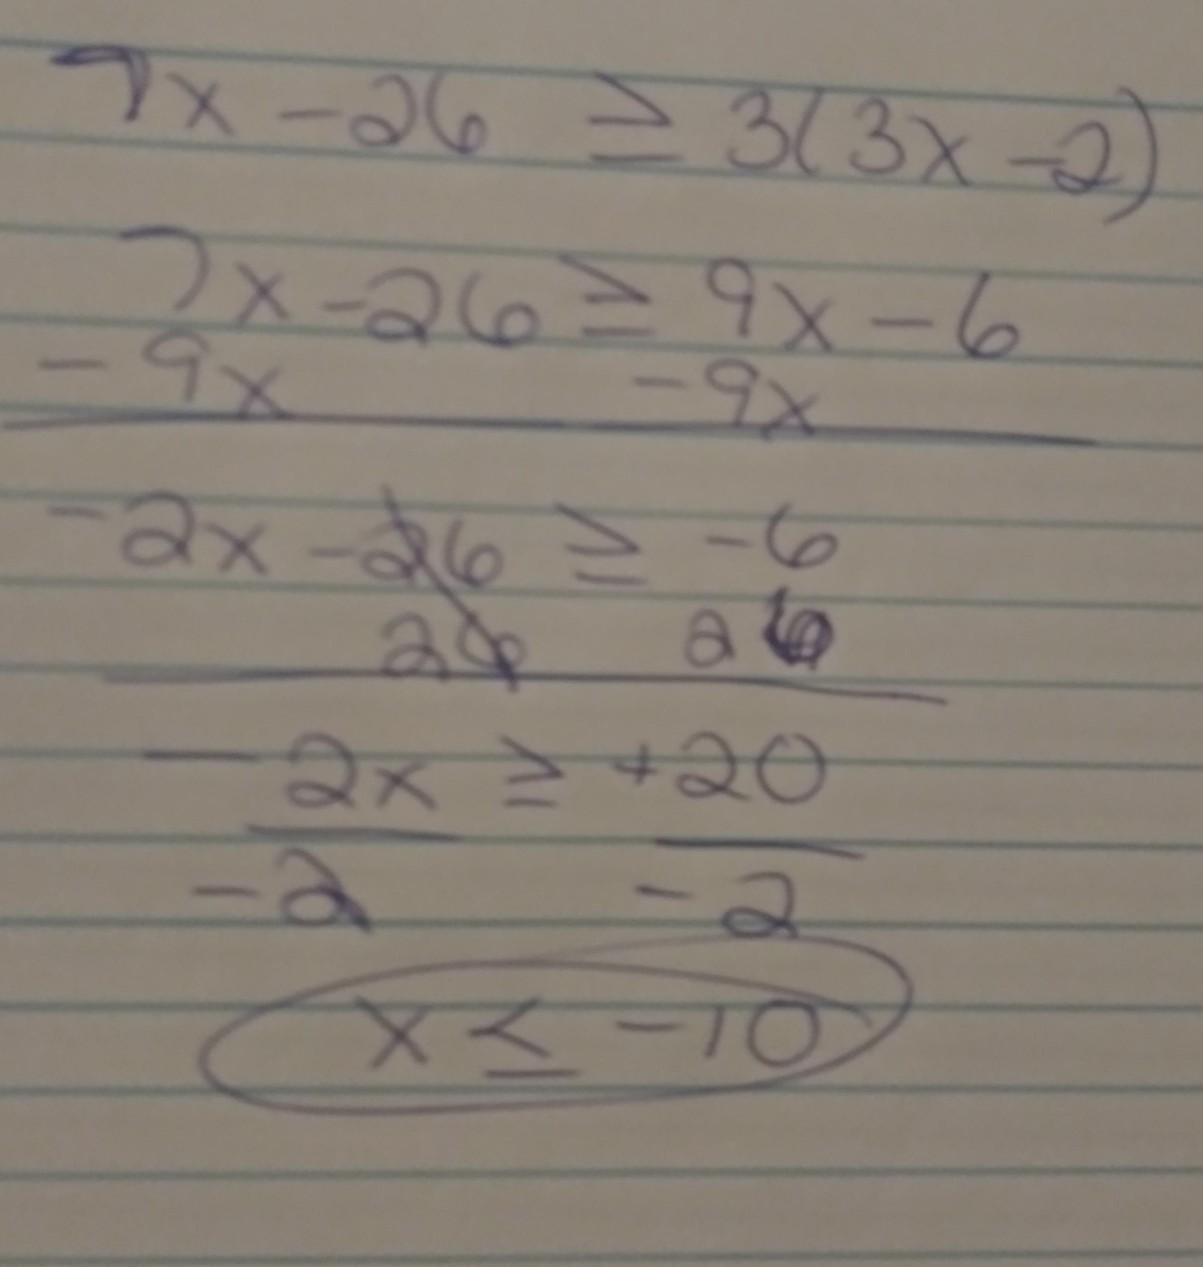 7x - 26 ≥ 3(3x - 2)
7x - 26 ≥ 9x - 6
- 9x - 9x
-2x - 26 ≥ -6
26 26
- 2x ≥ +20
-2 -2
x ≤ -10